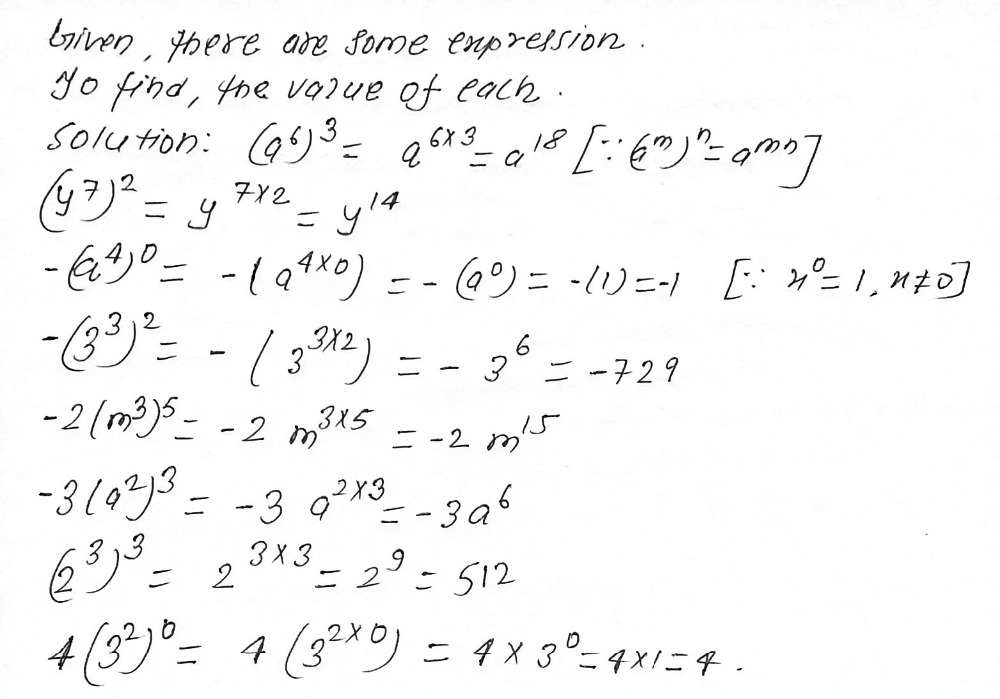 Given, there are some expression.
To find, the value of each.
Solution: (a⁶)³ = a⁶ˣ³ = a¹⁸ [∵ (aᵐ)ⁿ = aᵐⁿ]
(y⁷)² = y⁷ˣ² = y¹⁴
-(a⁴)⁰ = -(a⁴ˣ⁰) = -(a⁰) = -(1) = -1 [∵ x⁰ = 1, x≠0]
-(3³)² = -(3³ˣ²) = -3⁶ = -729
-2(m³)⁵ = -2 m³ˣ⁵ = -2 m¹⁵
-3(a²)³ = -3 a²ˣ³ = -3a⁶
(2³)³ = 2³ˣ³ = 2⁹ = 512
4(3²)⁰ = 4(3²ˣ⁰) = 4 × 3⁰ = 4×1 = 4.